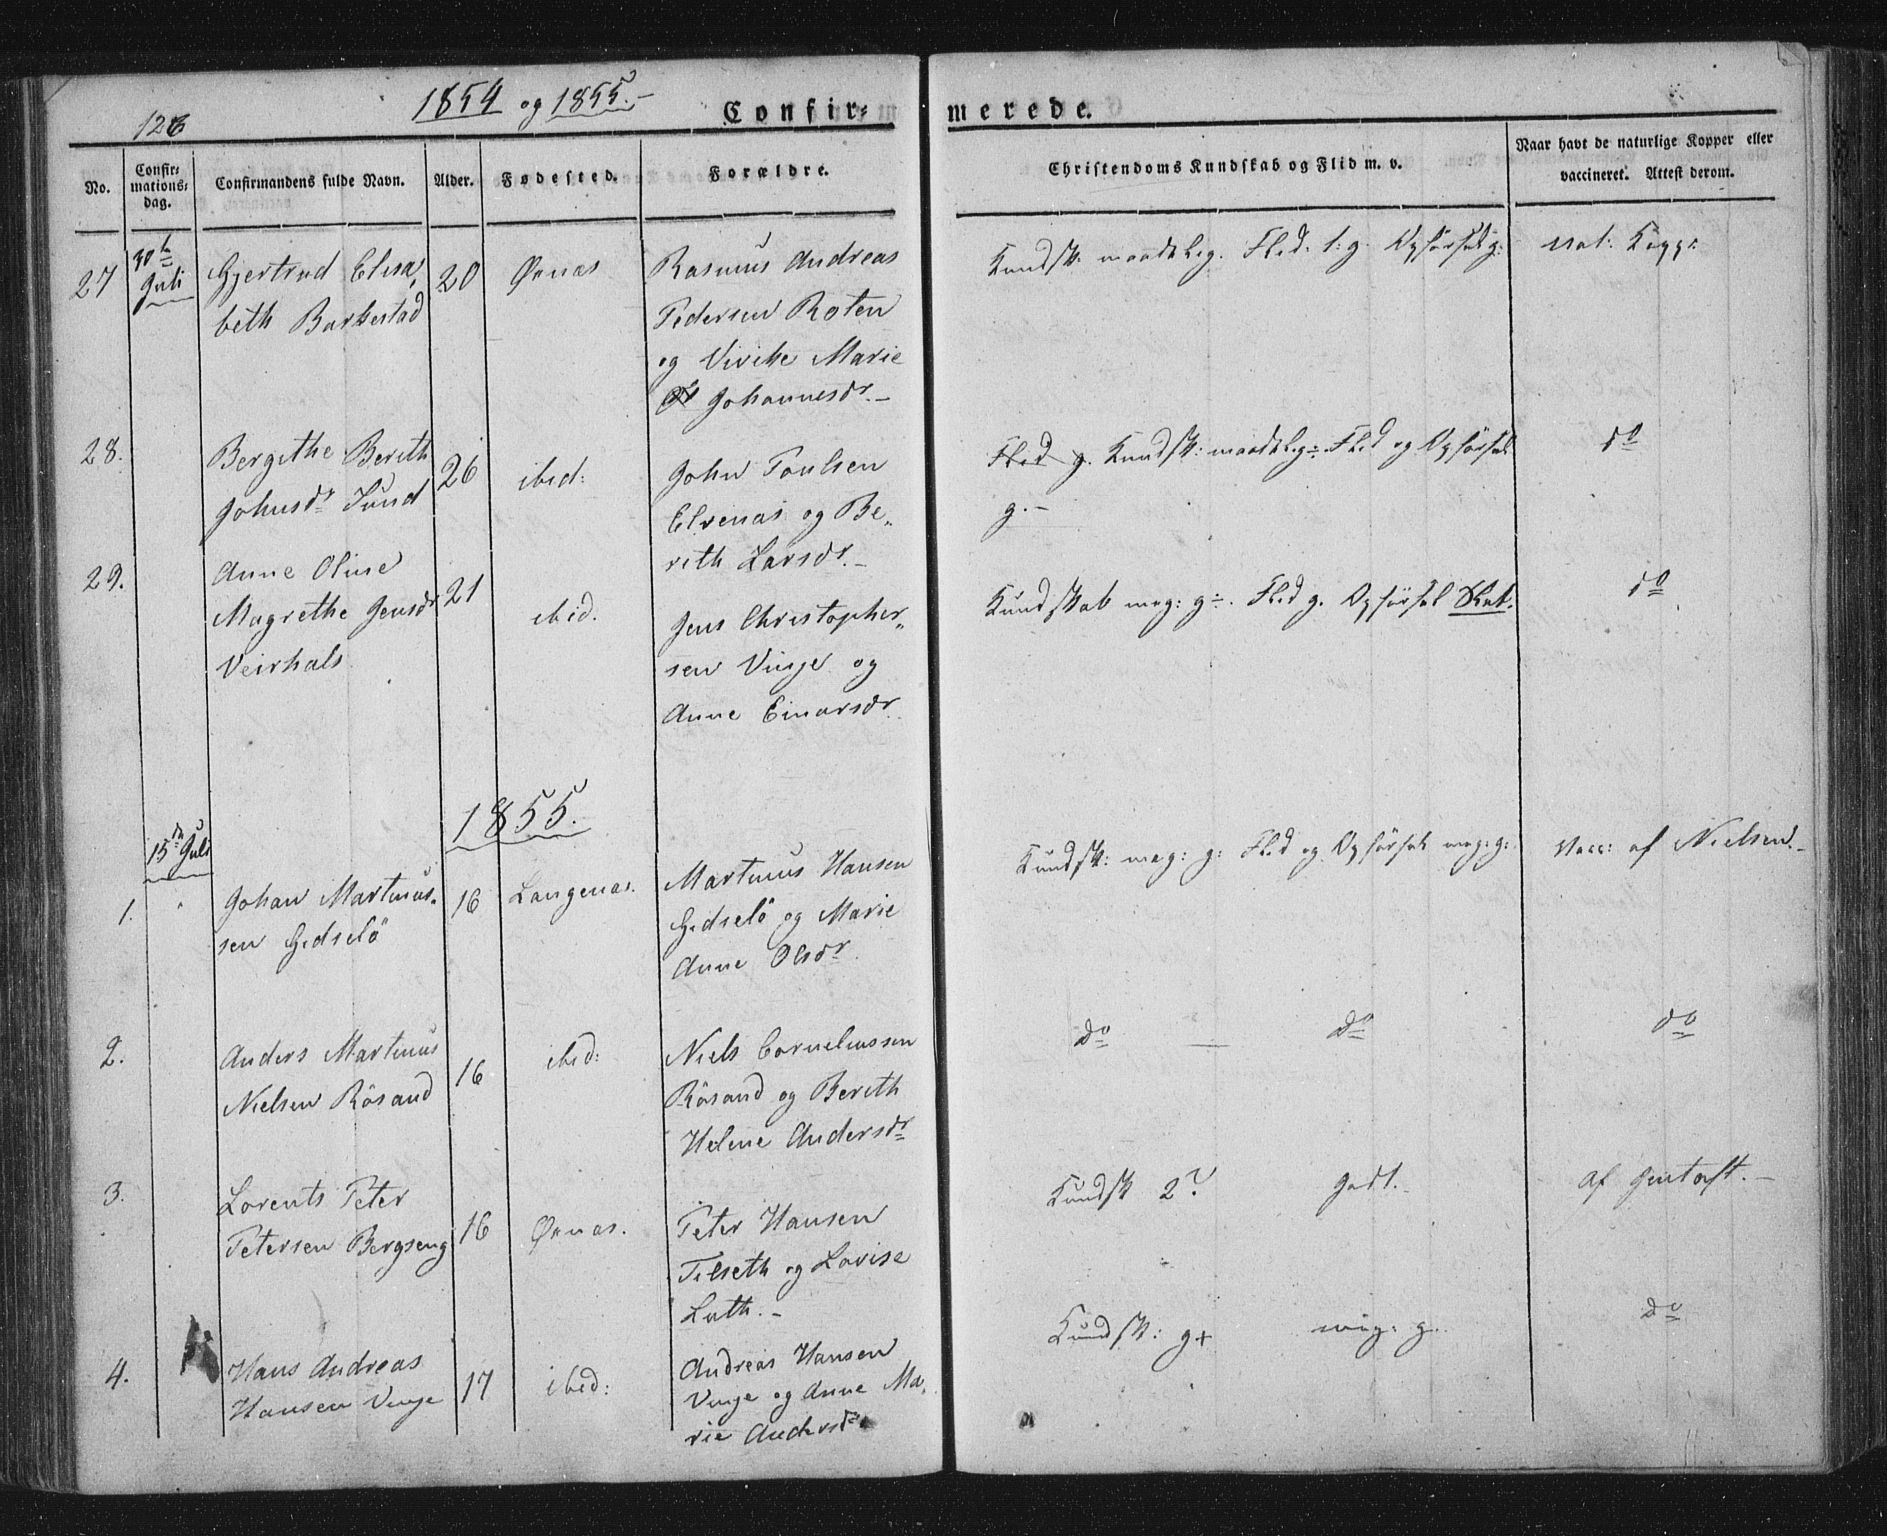 126
1854 og 1855.-
Confirmerede.
No.
Confirmations-dag.
Confirmandens fulde Navn.
Alder.
Fødested.
Forældre.
Christendoms Kundskab og Flid m. v.
Naar havt de naturlige Kopper eller
vaccineret. Attest derom.
27
30te
Juli
Gjertrud Elisa
beth Barkestad
20
Ørnæs
Rasmus Andreas
Pedersen Roten
og Vivike Marie
Johannesdr.-
Kundsk: maadelig. Flid t:g. Opførsel g.
Nat: Kopp:
28.
Bergithe Berith
Johnsdr Sund
26
ibid:
John Poulsen
Elvenæs og Be„
rith Larsdr.-
Flid g. Kundsk: maadelig. Flid og Opførsel
g.-
do
29.
Anne Oline
Magrethe Jensdr
Veirhals
21
ibid.
Jens Christopher„
sen Vinje og
Anne Einarsdr.
Kundskab meg: g. Flid g. Opførsel
do
1855.
15de Juli
1.
Johan Martinus-
sen Gidselö
16
Langenæs.
Martinus Hansen
Gidselö og Marie
Anne Olsdr.
Kundsk: meg: g: Flid og Opførsel meg: g:
Vacc: af Nielsen.-
2.
Anders Martinus
Nielsen Rösand
16
ibid:
Niels Corneliussen
Rösand og Berith
Helene Andersdr
do — do
do
3.
Lorents Peter
Petersen Bergseng
16
Ørnæs.
Peter Hansen
Tilseth og Lovise
Luth.-
Kundsk 2? godt.-
af Gentoft.-
4.
Hans Andreas
Hansen Vinje
17
ibid:
Andreas Hansen
Vinje og Anne Ma„
rie Andersdr
Kundsk: g+ meg: g.
do